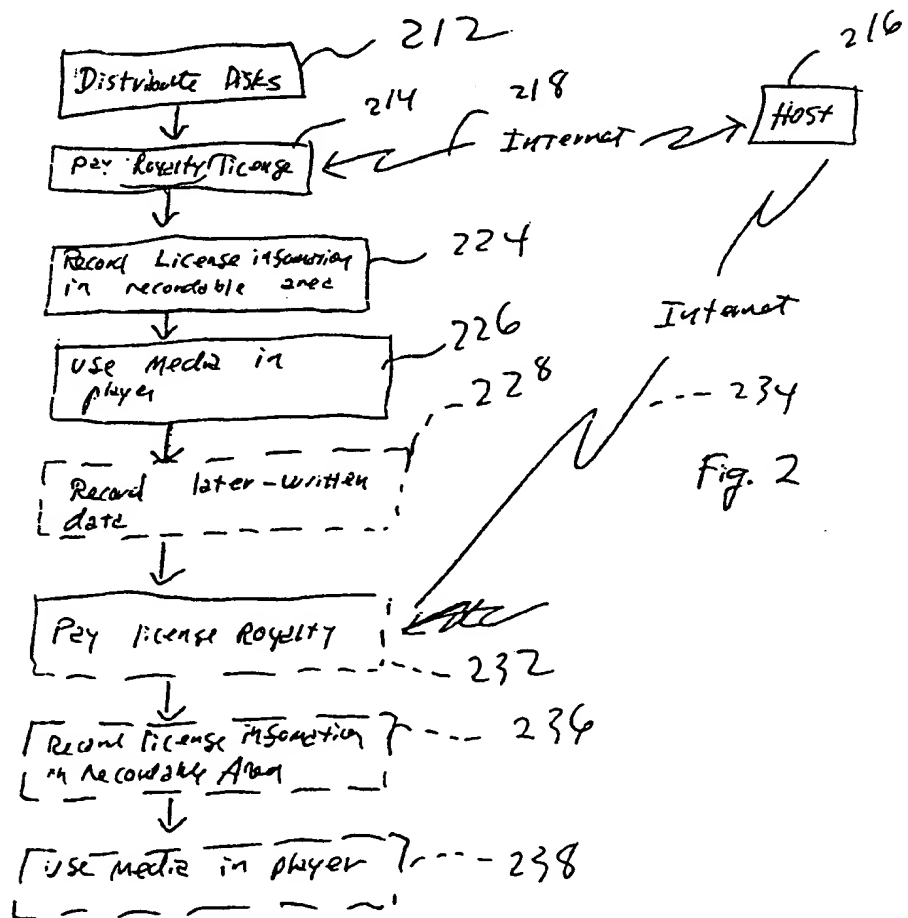 212
Distribute Disks
214
218
216
Pay Royalty/license
Internet
Host
Record License information
in recordable area
224
Use Media in
player
226
Internet
228
234
Record later-written
data
Fig. 2
Pay license Royalty
232
Record license information
in recordable Area
236
Use Media in player
238